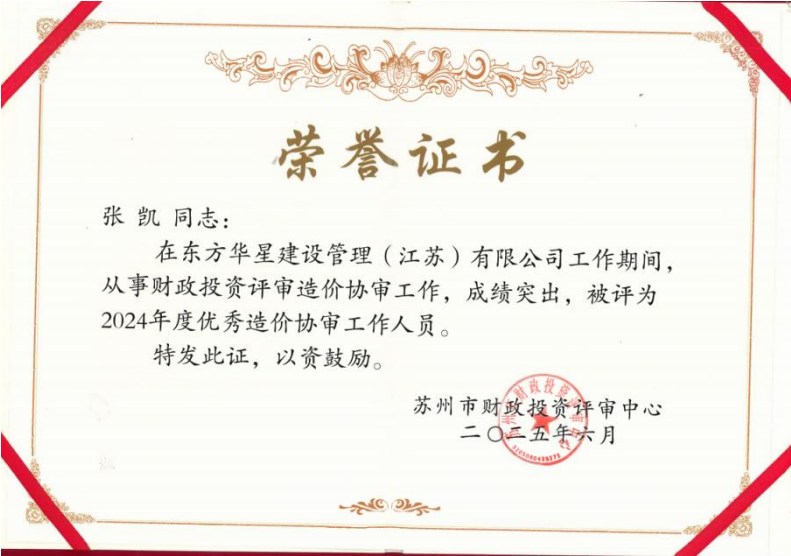 荣誉证书
张 凯 同志：
在东方华星建设管理（江苏）有限公司工作期间，
从事财政投资评审造价协审工作，成绩突出，被评为
2024年度优秀造价协审工作人员。
特发此证，以资鼓励。
苏州市财政投资评审中心
二〇二五年六月